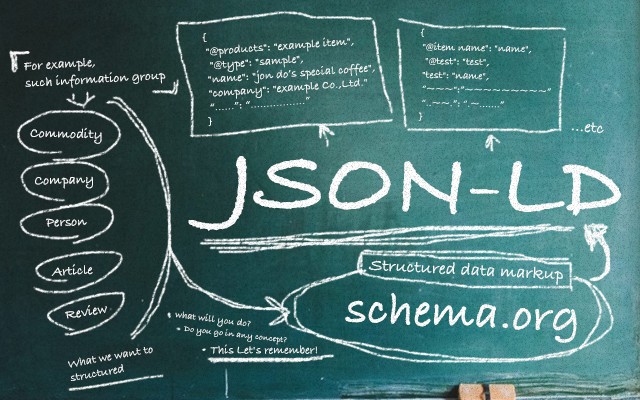 For example,
such information group
Commodity
Company
Person
Article
Review
What we want to
structured
{
"@products": "example item",
"@type": "sample",
"name": "jon do's special coffee",
"company": "example Co.,Ltd."
"......": "..................
}
{
"@item name": "name",
"@test": "test",
"test": "name",
"~~~~": "~~~~~~~~~~~"
}
...etc
JSON-LD
Structured data markup
schema.org
• what will you do?
• Do you go in any concept?
• This Let's remember!